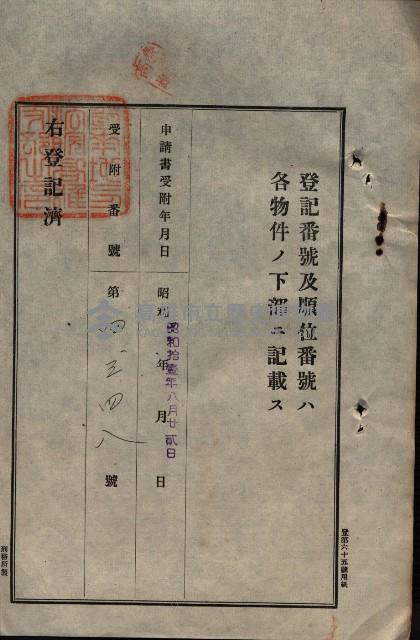 登記番號及順位番號ハ
各物件ノ下部ニ記載ス
申請書受附年月日 昭和 年 月 日
昭和拾壹年八月廿貳日
受附番號 第四三四八號
右登記濟
登第六十五號用紙
刑務所製
高雄市立歷史博物館